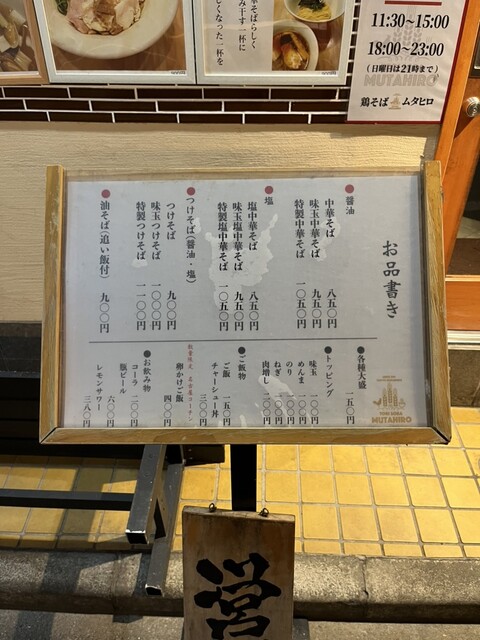 そばらしく
み干す一杯に
しくなった一杯を
11:30~15:00
18:00~23:00
(日曜日は21時まで)
MUTAHIRO
鶏そば ムタヒロ
お品書き
●醤油
中華そば 八五〇円
味玉中華そば 九五〇円
特製中華そば 一〇五〇円
●塩
塩中華そば 八五〇円
味玉塩中華そば 九五〇円
特製塩中華そば 一〇五〇円
●つけそば(醤油・塩)
つけそば 九〇〇円
味玉つけそば 一〇〇〇円
特製つけそば 一一〇〇円
●油そば(追い飯付) 九〇〇円
●各種大盛 一五〇円
●トッピング
味玉 一〇〇円
めんま 一〇〇円
のり 一〇〇円
ねぎ 一〇〇円
肉増し 二〇〇円
●ご飯物
ご飯 一五〇円
チャーシュー丼 三〇〇円
数量限定 名古屋コーチン
卵かけご飯 四〇〇円
●お飲み物
コーラ 二〇〇円
瓶ビール 六〇〇円
レモンサワー 三八〇円
TORI SOBA
MUTAHIRO
営